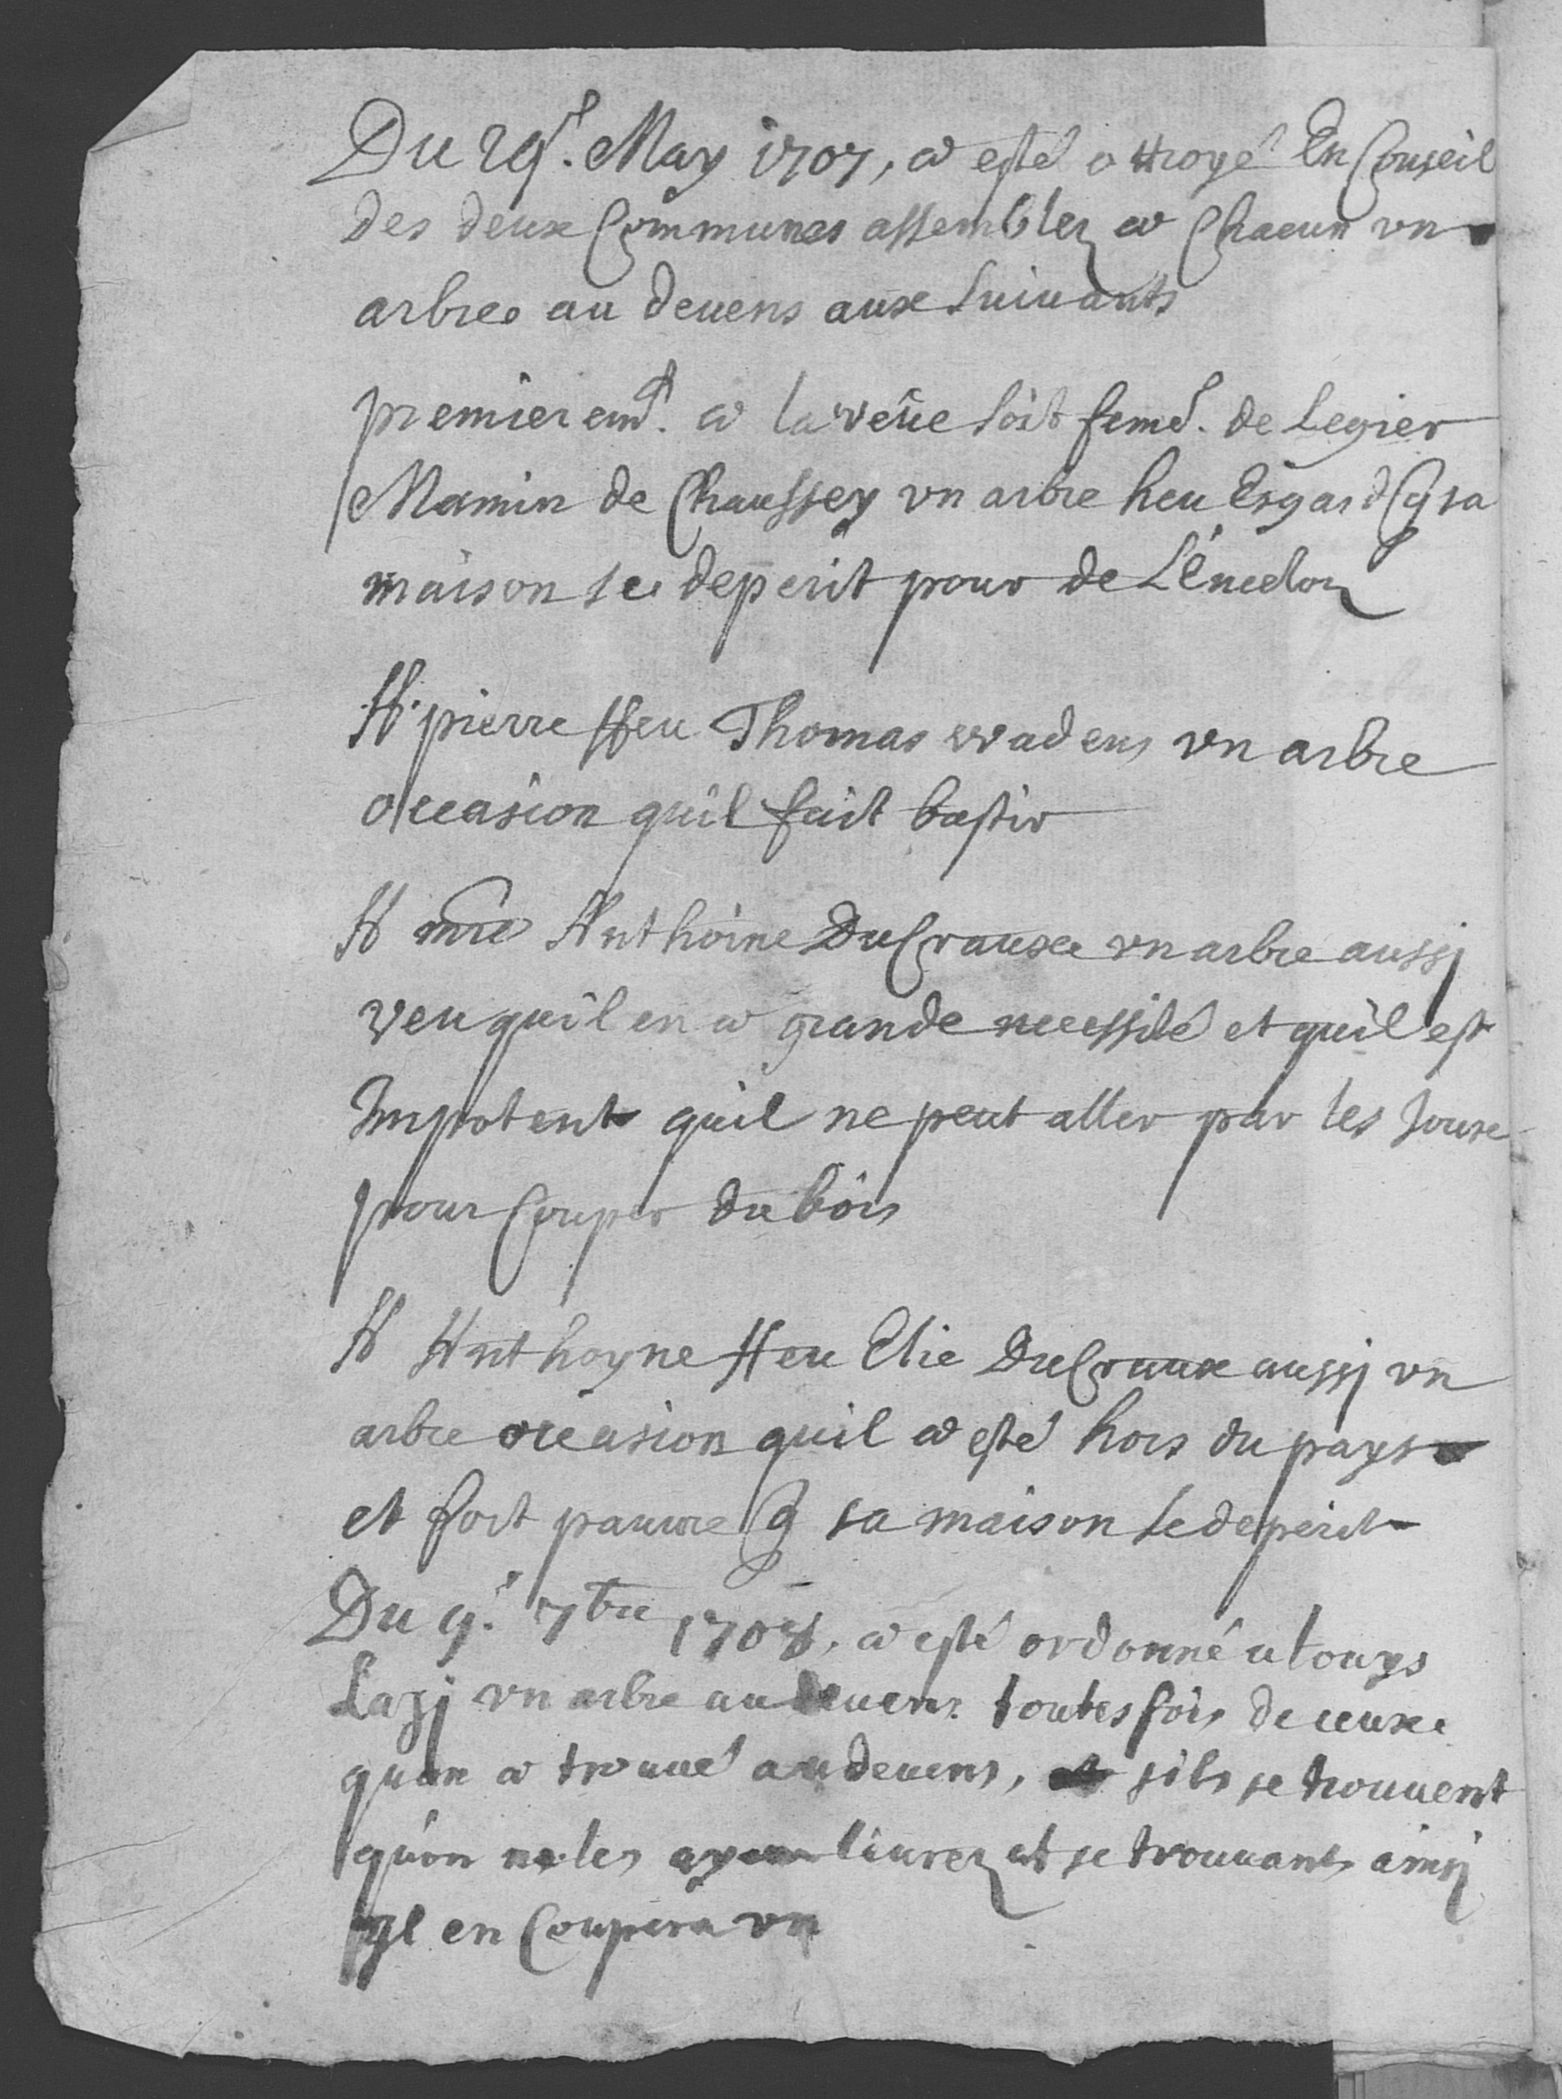 Du 29e. May 1707, a esté ottroyé En Conseil
des deux Communes assemblez a Chacun vn
arbre au deuens aux suiuants
premieremt. a la veûe soit feme. de Legier
Mamin de Chaussey vn arbre heu Esgard q sa
maison se deperit pour de L'encelor
A. pierre ffeu Thomas Wadens vn arbre
occasion quil fait bastir
A mre Anthoine DuCraux vn arbre aussj
veu quil en a grande necessité et quil est
Impotent quil ne peut aller par les Joux
pour Couper du bois
A Anthoyne ffeu Elie DuCraux aussj vn
arbre occasion quil a esté hors du pays
et fort pauure q sa maison se deperit
Du 9e. 7bre 1708, a esté ordonné a Louys
Lazj vn arbre au deuens toutesfois de ceux
quon a trouué au deuens, sils se trouuent
quon ne les aye liurez et se trouuants ainsj
yl en Coupera vn